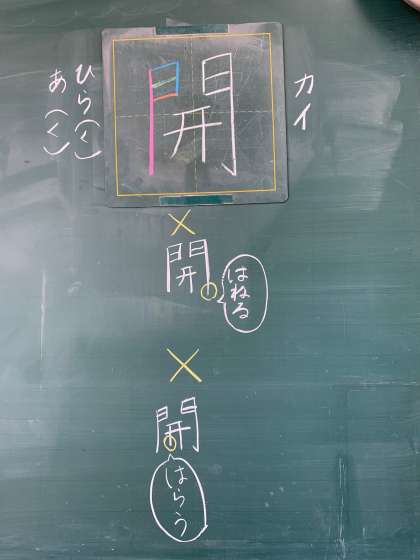 開
カイ
ひら(く)
あ(く)
×
開
はねる
×
開
はらう